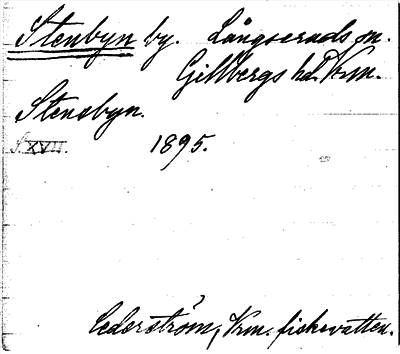 Stenbyn by. Långseruds sn.
Gillbergs hd. Vrm.
Stensbyn.
S. XVII. 1895.
Cederström, Vrm. fiskevatten.